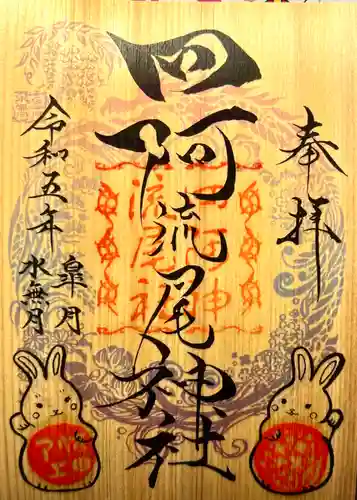 奉拝
四阿流尾神社
令和五年
皐月
水無月